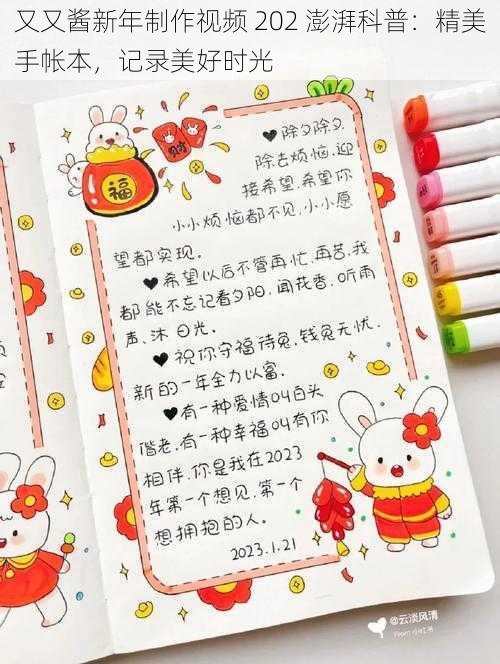 又又酱新年制作视频 202 澎湃科普：精美
手帐本，记录美好时光
福
财
♥除夕除夕.
除去烦恼.迎
接希望.希望你
小小烦恼都不见.小小愿
望都实现。
♥希望以后不管再忙.再苦.我
都能不忘记看夕阳.闻花香.听雨
声.沐日光。
♥祝你守福待兔.钱兔无忧.
新的一年全力以富。
♥有一种爱情叫白头
偕老.有一种幸福叫有你
相伴.你是我在2023
年第一个想见.第一个
想拥抱的人。
2023.1.21
@云淡风清
From 小红书